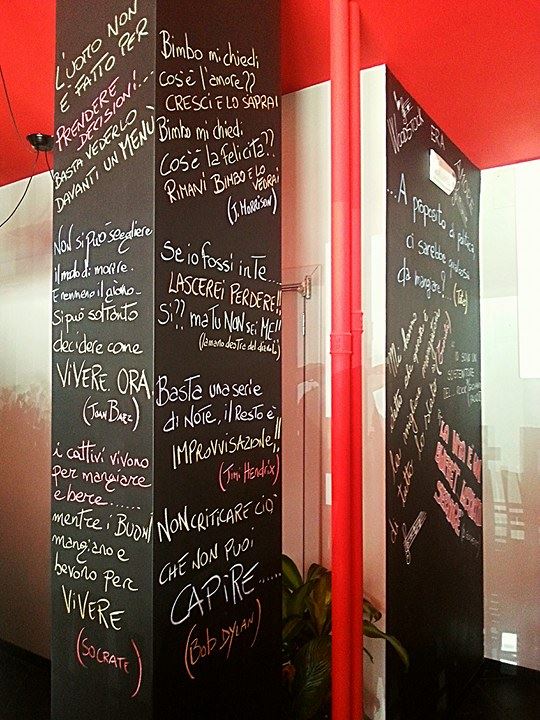 L'UOMO NON
È FATTO PER
PRENDERE
DECISIONI...
BASTA VEDERLO
DAVANTI UN MENÙ
NON si può scegliere
il modo di morire.
E nemmeno il giorno.
Si può soltanto
decidere come
VIVERE. ORA.
(JOAN BAEZ)
i cattivi vivono
per mangiare
e bere......
mentre i BUONI
mangiano e
bevono per
VIVERE
(SOCRATE)
Bimbo mi chiedi
cos'è l'amore??
CRESCI E LO SAPRAI
Bimbo mi chiedi
cos'è la felicità?.
RIMANI BIMBO E LO
VEDRAI
(J. MORRISON)
Se io fossi in te...
LASCEREI PERDERE!!
Si?? ma tu NON sei ME!!
(la mano destra del diavolo)
BASTA una serie
di NOTE, il RESTO è
IMPROVVISAZIONE!!
(Jimi HENDRIX)
NON CRITICARE CIÒ
CHE NON PUOI
CAPIRE......
(Bob DYLAN)
WOODSTOCK ERA
...A proposito di politica
ci sarebbe qualcosa
da mangiare?
(Totò)